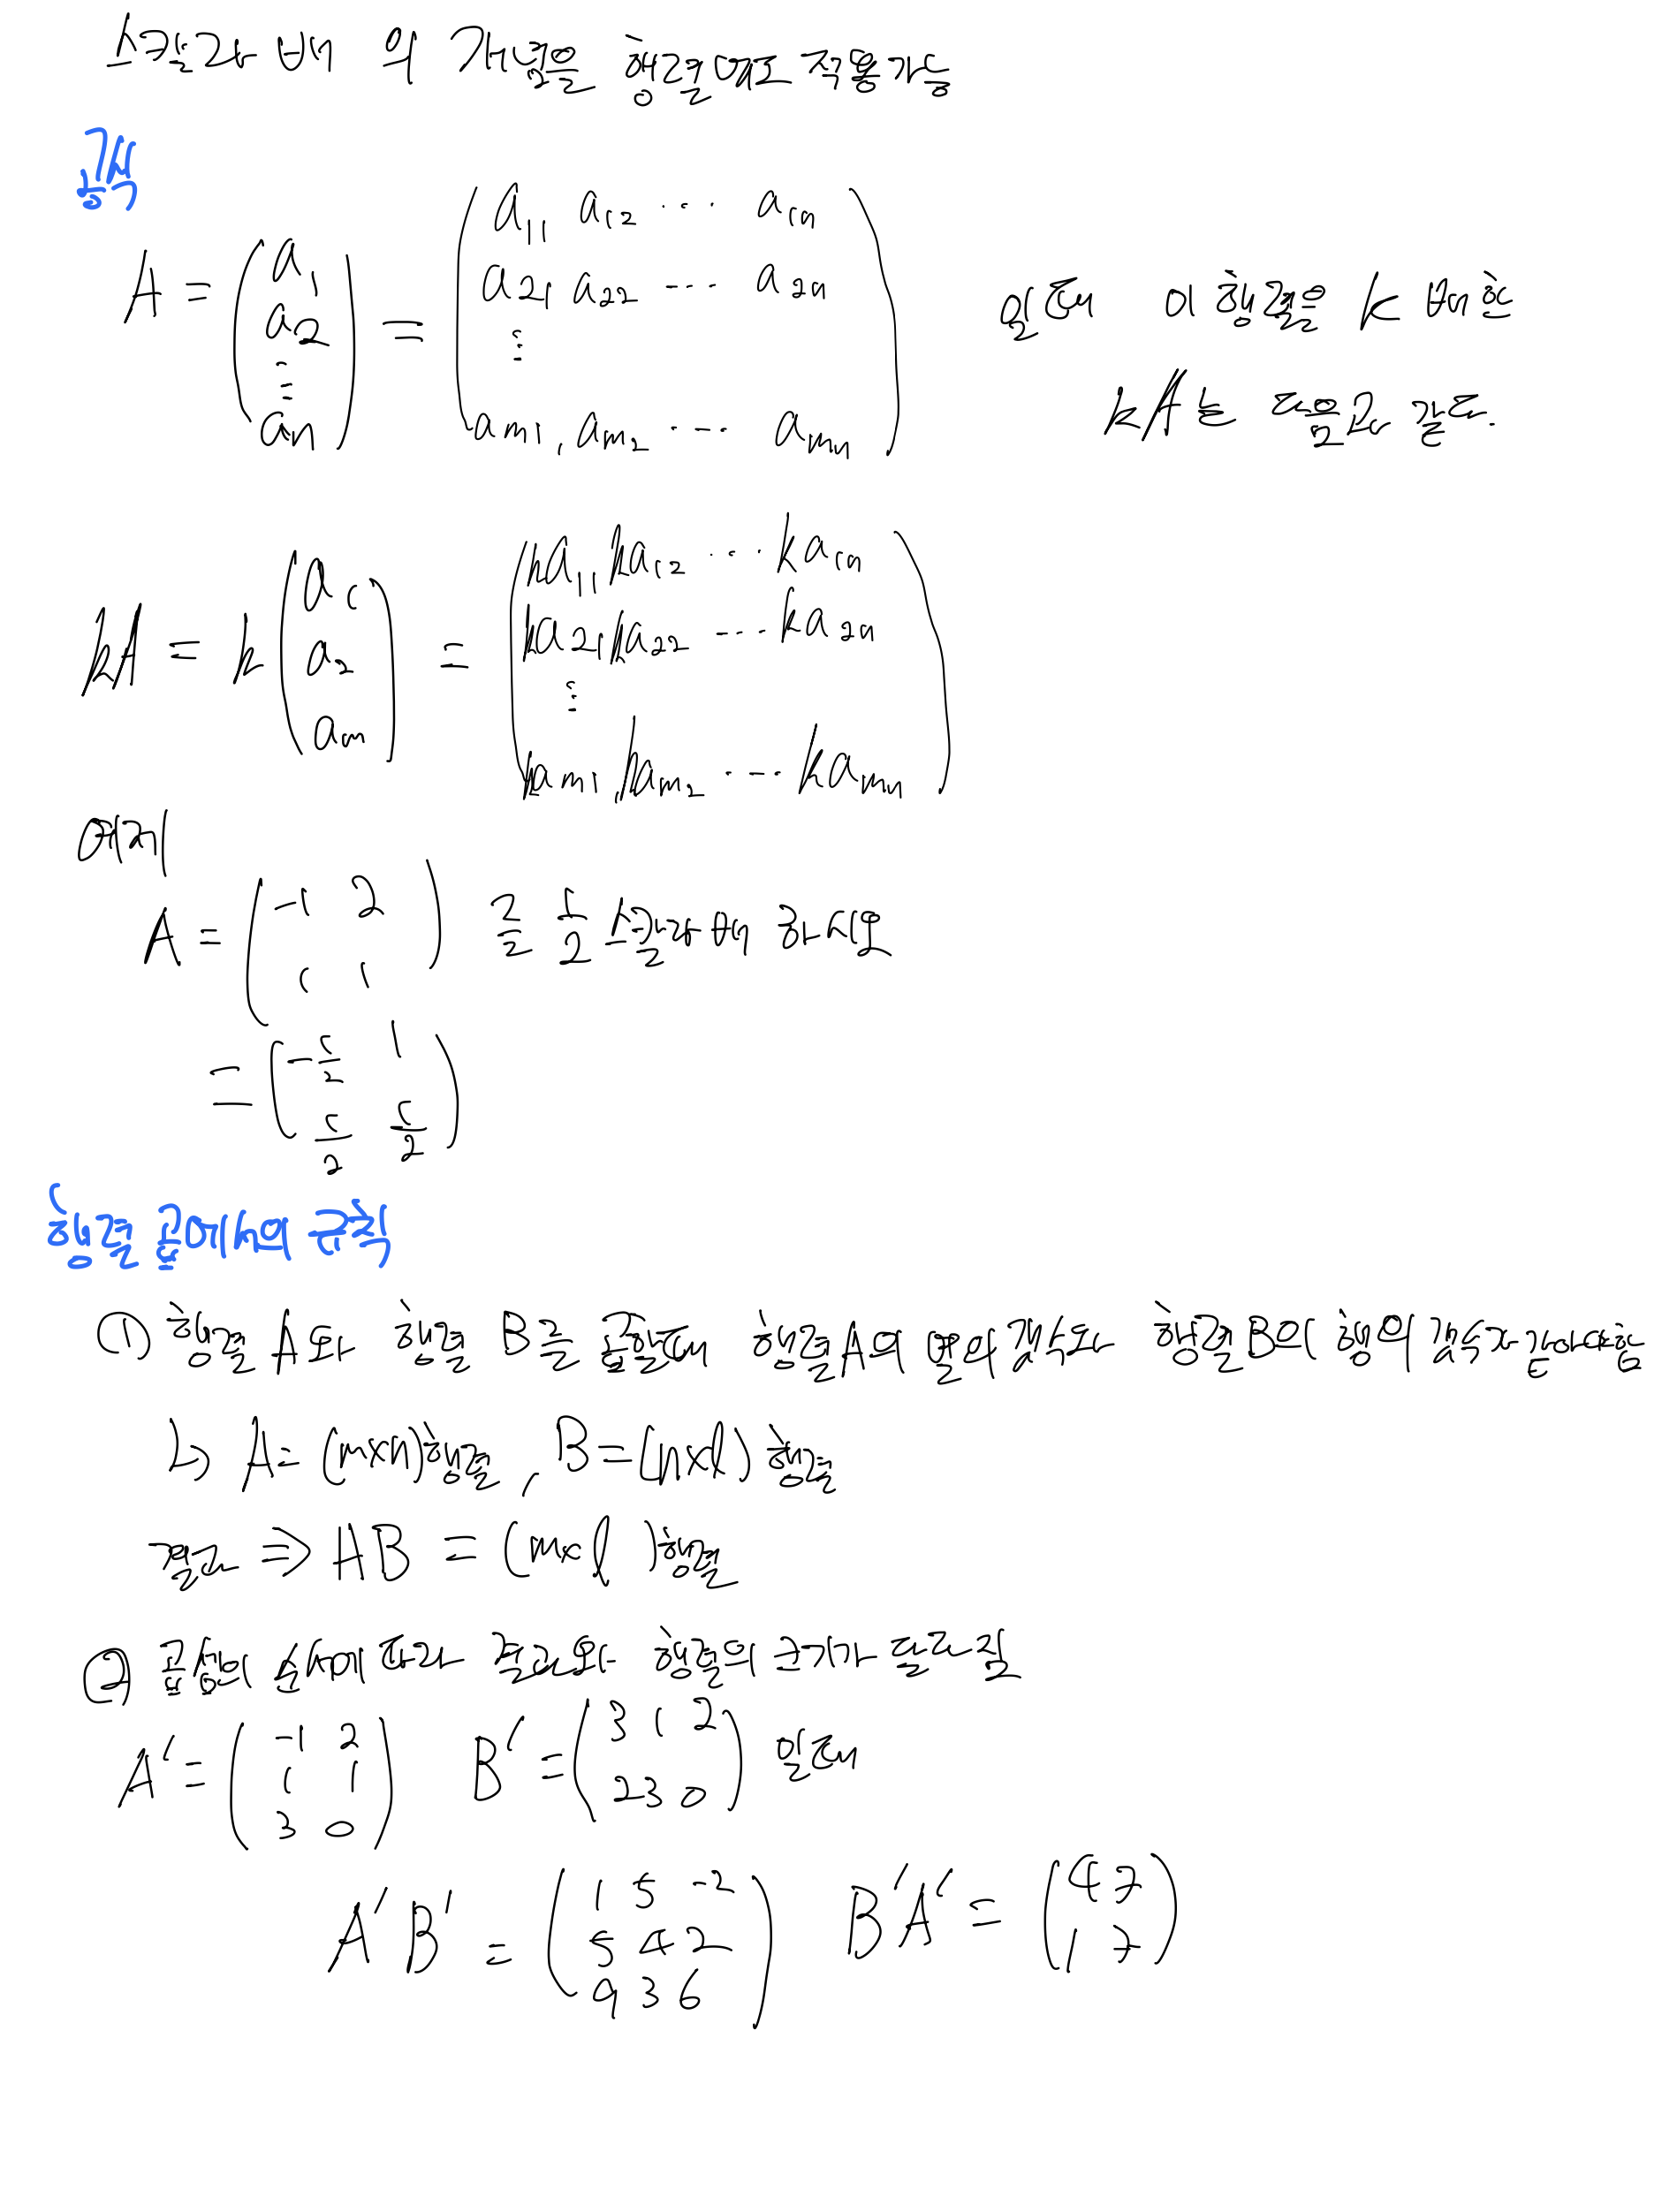 스칼라 배 의 개념을 행렬에도 적용가능
공식
A = (a1 a2 ⋮ an) = (a11 a12 ⋯ a1n
a21 a22 ⋯ a2n
⋮
am1, am2 ⋯ amn) 일때 이 행렬을 k 배한
kA는 다음과 같다.
kA = k(a1 a2 am) = (ka11 ka12 ⋯ ka1n
ka21 ka22 ⋯ ka2n
⋮
kam1, kam2 ⋯ kamn)
예제
A = (-1 2
1 1) 를 1/2 스칼라배 하시오
= (-1/2 1
1/2 1/2)
행렬 곱에서의 규칙
① 행렬 A와 행렬 B를 곱할때 행렬A의 열의 갯수와 행렬B의 행의 갯수가 같아야함
↳ A = (m×n)행렬, B = (n×l) 행렬
결과 ⇒ AB = (m×l )행렬
② 곱셈의 순서에 따라 결과와 행렬의 크기가 달라짐
A' = (-1 2
1 1
3 0) B' = (3 1 2
2 3 0) 일때
A'B' = (1 5 -2
5 4 2
9 3 6) B'A' = (4 7
1 7)